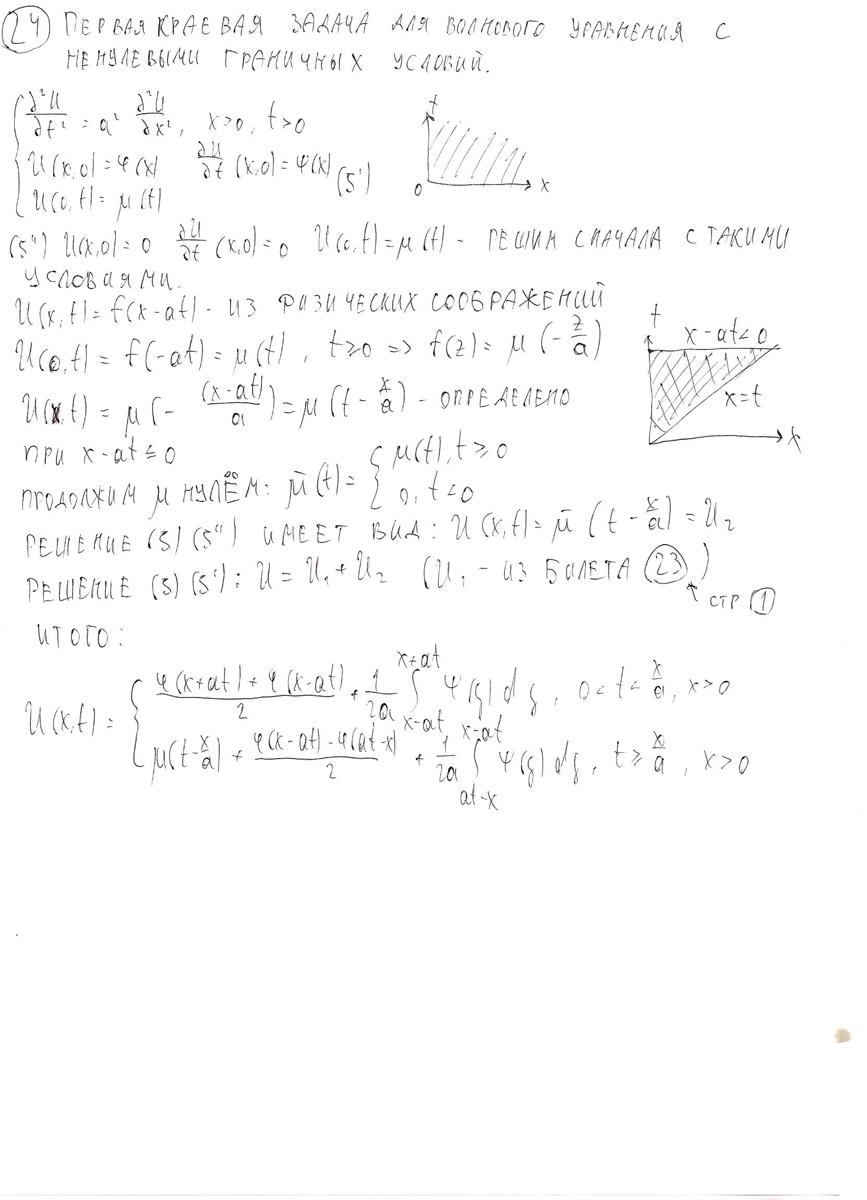 24 ПЕРВАЯ КРАЕВАЯ ЗАДАЧА ДЛЯ ВОЛНОВОГО УРАВНЕНИЯ С
НЕНУЛЕВЫМИ ГРАНИЧНЫХ УСЛОВИЙ.
∂²U/∂t² = a² ∂²U/∂x², x>0, t>0
U(x,0)=φ(x) ∂U/∂t (x,0)=ψ(x) (5')
U(0,t)=μ(t)
t
0 x
(5'') U(x,0)=0 ∂U/∂t (x,0)=0 U(0,t)=μ(t) - РЕШИМ СНАЧАЛА С ТАКИМИ
УСЛОВИЯМИ.
U(x,t)=f(x-at) - ИЗ ФИЗИЧЕСКИХ СООБРАЖЕНИЙ
U(0,t)=f(-at)=μ(t), t≥0 => f(z)=μ(-z/a)
U(x,t)=μ(-(x-at)/a)=μ(t-x/a) - ОПРЕДЕЛЕНО
ПРИ x-at≤0
t
x-at<0
x=t
x
ПРОДОЛЖИМ μ НУЛЁМ: μ̄(t)={ μ(t), t≥0
0, t<0
РЕШЕНИЕ (5)(5'') ИМЕЕТ ВИД: U(x,t)=μ̄(t-x/a)=U₂
РЕШЕНИЕ (5)(5'): U=U₁+U₂ (U₁ - ИЗ БИЛЕТА 23)
СТР 1
ИТОГО:
U(x,t)={ (φ(x+at)+φ(x-at))/2 + 1/2a ∫_{x-at}^{x+at} ψ(ξ)dξ, 0<t<x/a, x>0
μ(t-x/a) + (φ(x-at)-φ(at-x))/2 + 1/2a ∫_{at-x}^{x-at} ψ(ξ)dξ, t≥x/a, x>0